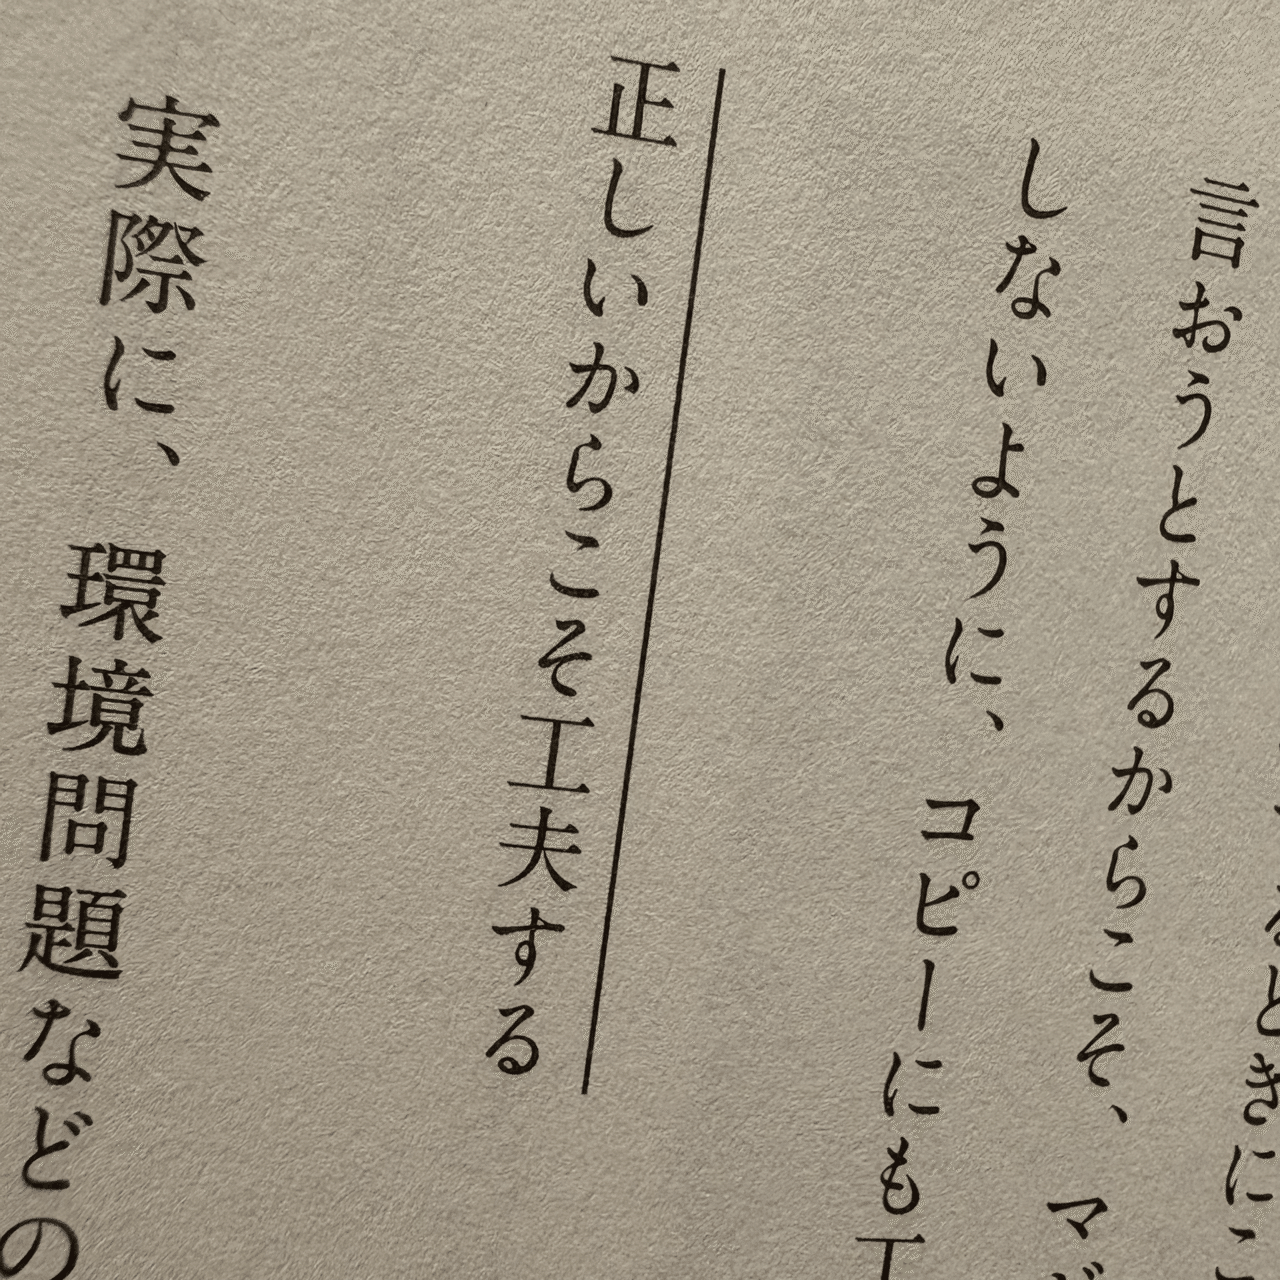 るときにこ
言おうとするからこそ、マジ
しないように、コピーにも工
正しいからこそ工夫する
実際に、環境問題などの